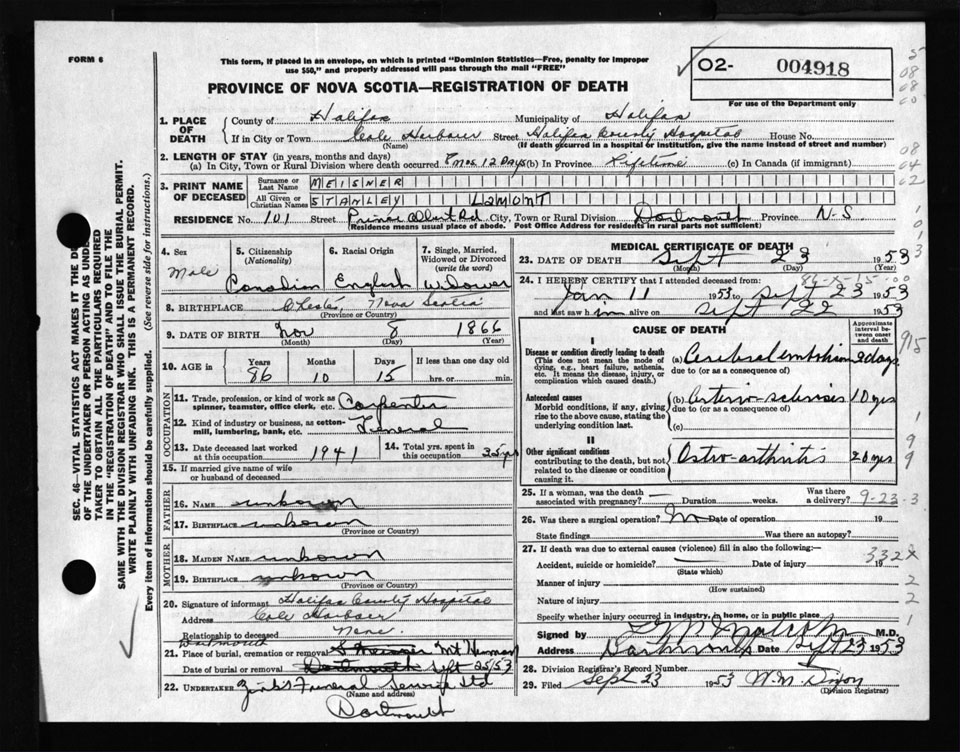 FORM 6
This form, if placed in an envelope, on which is printed "Dominion Statistics—Free, penalty for improper
use $50," and properly addressed will pass through the mail "FREE"
PROVINCE OF NOVA SCOTIA—REGISTRATION OF DEATH
O2- 004918
For use of the Department only
1. PLACE OF DEATH
County of Halifax Municipality of Halifax
If in City or Town Cole Harbour Street Halifax County Hospital House No.
(Name) (If death occurred in a hospital or institution, give the name instead of street and number)
2. LENGTH OF STAY (in years, months and days)
(a) In City, Town or Rural Division where death occurred 8 mos. 12 Days (b) In Province Lifetime (c) In Canada (if immigrant)
3. PRINT NAME OF DECEASED
Surname or Last Name MEISNER
All Given or Christian Names STANLEY LAMONT
RESIDENCE No. 101 Street Prince Albert Rd. City, Town or Rural Division Dartmouth Province N-S.
(Residence means usual place of abode. Post Office Address for residents in rural parts not sufficient)
4. Sex Male
5. Citizenship (Nationality) Canadian
6. Racial Origin English
7. Single, Married, Widowed or Divorced (write the word) Widower
8. BIRTHPLACE Chester, Nova Scotia
(Province or Country)
9. DATE OF BIRTH Nov 8 1866
(Month) (Day) (Year)
10. AGE in Years 86 Months 10 Days 15 If less than one day old hrs. or min.
OCCUPATION
11. Trade, profession or kind of work as spinner, teamster, office clerk, etc. Carpenter
12. Kind of industry or business, as cotton-mill, lumbering, bank, etc. General
13. Date deceased last worked at this occupation 1941
14. Total yrs. spent in this occupation 35 yrs
15. If married give name of wife or husband of deceased
FATHER
16. Name unkown
17. Birthplace unkown
(Province or Country)
MOTHER
18. Maiden Name unkown
19. Birthplace unkown
(Province or Country)
20. Signature of informant Halifax County Hospital
Address Cole Harbour
Relationship to deceased None.
Dartmouth
21. Place of burial, cremation or removal Mt Herman
Date of burial or removal Dartmouth Sept 25/53
22. UNDERTAKER Zink's Funeral Service Ltd
(Name and address)
Dartmouth
MEDICAL CERTIFICATE OF DEATH
23. DATE OF DEATH Sept 23 1953
(Month) (Day) (Year)
24. I HEREBY CERTIFY that I attended deceased from:
Jan 11 1953 to Sept 23 1953
and last saw him alive on Sept 22 1953
CAUSE OF DEATH
Approximate interval between onset and death
I
Disease or condition directly leading to death (a) Cerebral embolism 2 days
(This does not mean the mode of dying, e.g., heart failure, asthenia, etc. It means the disease, injury, or complication which caused death.)
due to (or as a consequence of)
Antecedent causes (b) Arterio-sclerosis 10 yrs
Morbid conditions, if any, giving rise to the above cause, stating the underlying condition last.
due to (or as a consequence of)
(c)
II
Other significant conditions Ostro-arthritis 20 yrs
contributing to the death, but not related to the disease or condition causing it.
25. If a woman, was the death associated with pregnancy? Duration weeks. Was there a delivery? 9-23-3
26. Was there a surgical operation? No Date of operation 19
State findings Was there an autopsy?
27. If death was due to external causes (violence) fill in also the following:—
332X
Accident, suicide or homicide? Date of injury 19
(State which)
Manner of injury
(How sustained)
Nature of injury
Specify whether injury occurred in industry, in home, or in public place
Signed by M.D.
Address Dartmouth Date Sept 23 1953
28. Division Registrar's Record Number
29. Filed Sept 23 1953 W.M. Dixon
(Division Registrar)
SEC. 46—VITAL STATISTICS ACT MAKES IT THE DU
OF THE UNDERTAKER OR PERSON ACTING AS UNDE
TAKER TO OBTAIN ALL THE PARTICULARS REQUIRED
IN THE "REGISTRATION OF DEATH" AND TO FILE THE
SAME WITH THE DIVISION REGISTRAR WHO SHALL ISSUE THE BURIAL PERMIT.
WRITE PLAINLY WITH UNFADING INK. THIS IS A PERMANENT RECORD.
Every item of information should be carefully supplied. (See reverse side for instructions.)